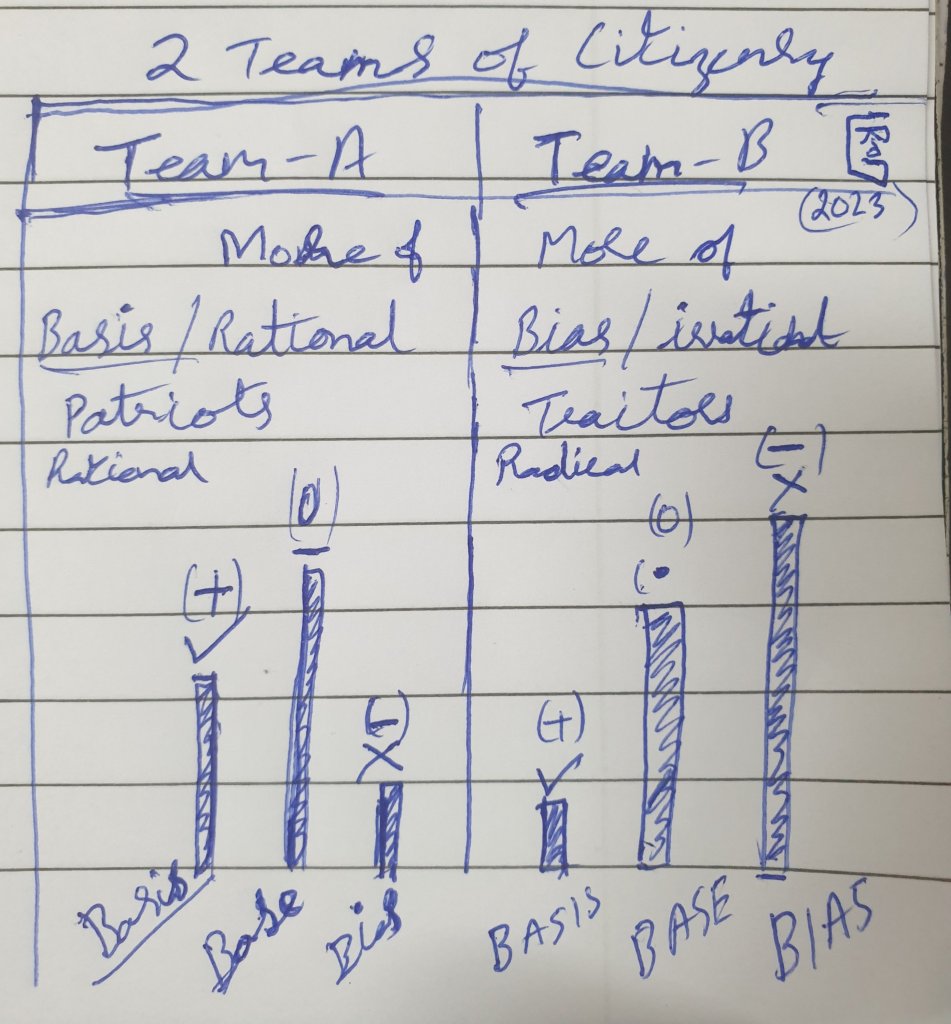 2 Teams of Citizenry
Team-A
Team-B
Raj
(2023)
More of
Basis / Rational
Patriots
Rational
More of
Bias /
Traitors
Radical
(+)
(0)
(-)
(+)
(0)
(-)
Basis
Base
Bias
BASIS
BASE
BIAS